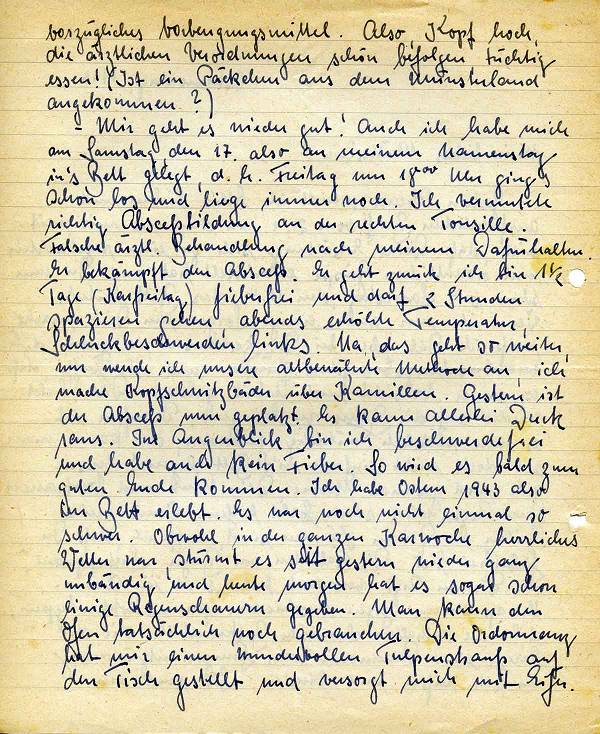 vorzügliches Vorbeugungsmittel. Also, Kopf hoch,
die ärztlichen Verordnungen schön befolgen tüchtig
essen! (Ist ein Päckchen aus dem Münsterland
angekommen?)
- Mir geht es wieder gut! Auch ich habe mich
am Samstag, den 17. also an meinem Namenstag
in's Bett gelegt, d. h. Freitag um 18⁰⁰ Uhr ging's
schon los und liege immer noch. Ich vermutete
richtig Absceßbildung an der rechten Tonsille.
Falsche ärztl. Behandlung nach meinem Dafürhalten.
Er bekämpft den Absceß. Er geht zurück ich bin 1½
Tage (Karfreitag) fieberfrei und darf 2 Stunden
spazieren gehen abends erhöhte Temperatur,
Schluckbeschwerden links. Na, das geht so weiter,
nun wende ich unsere altbewährte Methode an, ich
mache Kopfschwitzbäder über Kamillen. Gestern ist
der Absceß nun geplatzt. Es kam allerlei Dreck
raus. Im Augenblick bin ich beschwerdefrei
und habe auch kein Fieber. So wird es bald zum
guten Ende kommen. Ich habe Ostern 1943 also
im Bett erlebt. Es war noch nicht einmal so
schwer. Obwohl in der ganzen Karwoche herrliches
Wetter war, stürmt es seit gestern wieder ganz
unbändig und heute morgen hat es sogar schon
einige Regenschauern gegeben. Man kann den
Ofen tatsächlich noch gebrauchen. Die Ordonnanz
hat mir einen wundervollen Tulpenstrauß auf
den Tisch gestellt und versorgt mich mit